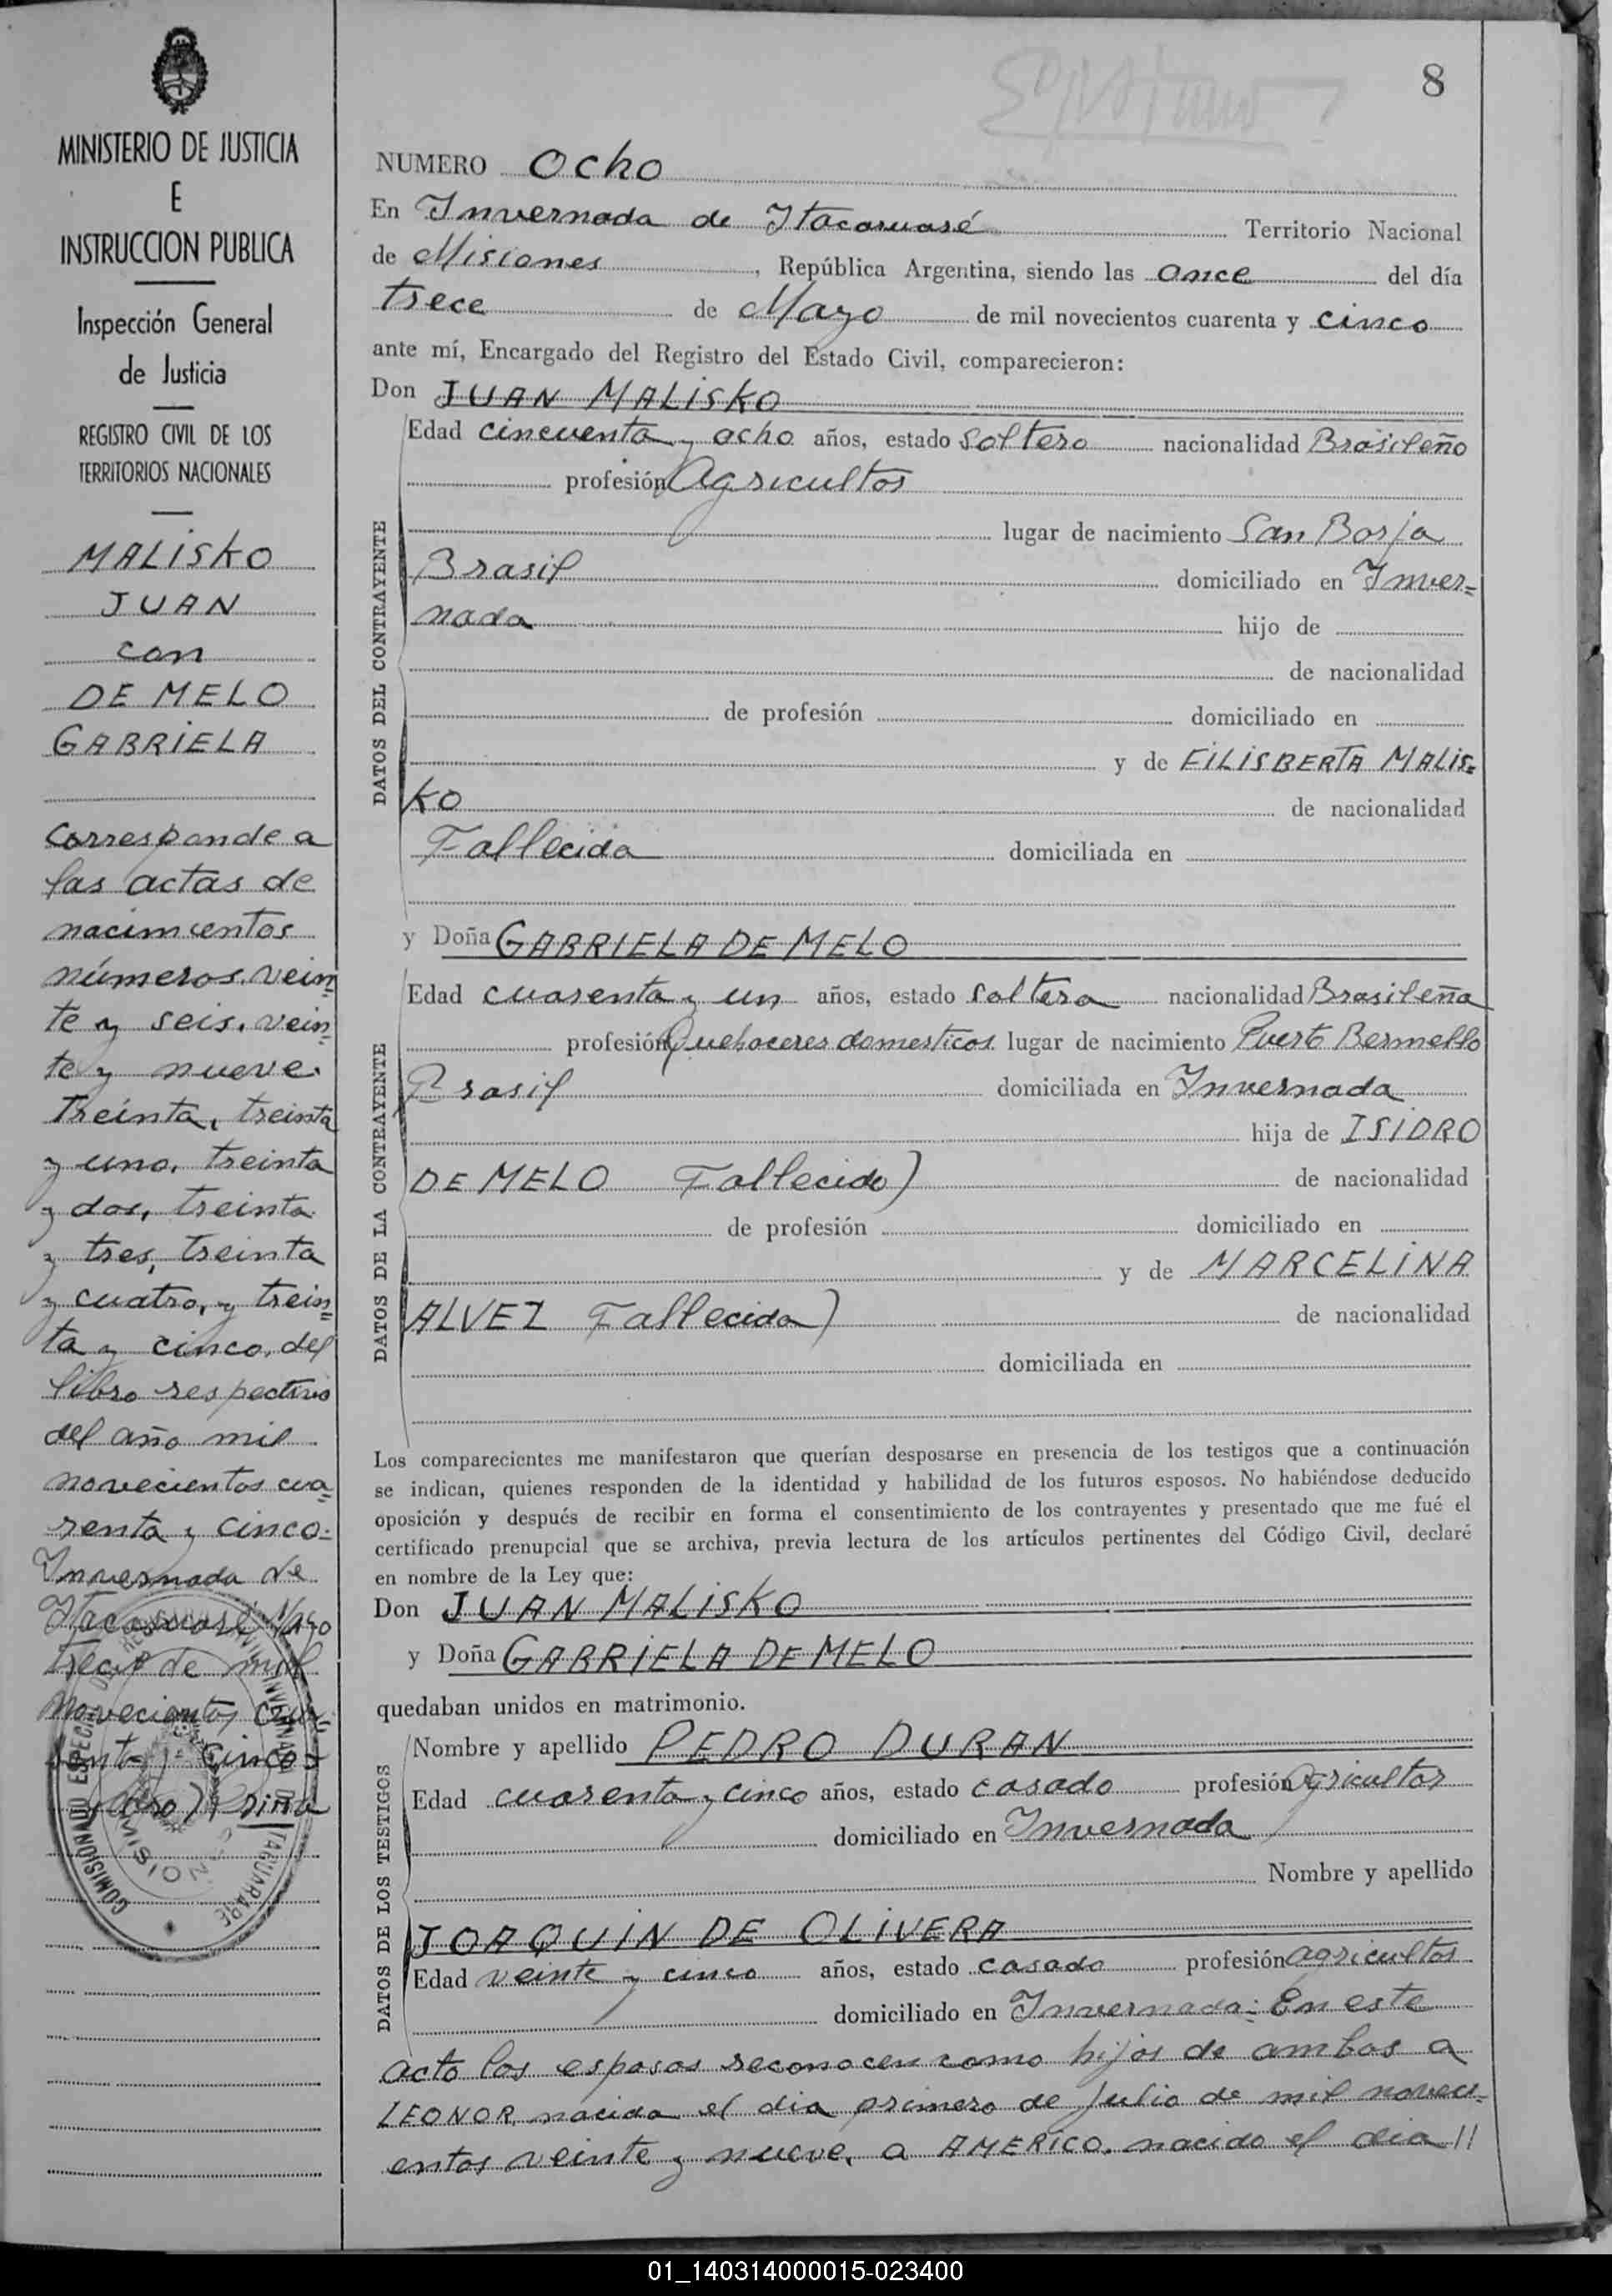 MINISTERIO DE JUSTICIA
E
INSTRUCCION PUBLICA
Inspección General
de Justicia
REGISTRO CIVIL DE LOS
TERRITORIOS NACIONALES
MALISKO
JUAN
con
DE MELO
GABRIELA
Corresponde a
las actas de
nacimientos
números vein
te y seis, vein
te y nueve
Treinta, treinta
y uno, treinta
y dos, treinta
y tres, treinta
y cuatro, y trein
ta y cinco, del
libro respectivo
del año mil
novecientos cua
renta y cinco.
Invernada de
Itacaruaré Mayo
trece de mil
novecientos cua
renta y cinco
COMISIONADO ESPECIAL
MISIONES
8
NUMERO Ocho
En Invernada de Itacaruaré Territorio Nacional
de Misiones, República Argentina, siendo las once del día
trece de Mayo de mil novecientos cuarenta y cinco
ante mí, Encargado del Registro del Estado Civil, comparecieron:
Don JUAN MALISKO
DATOS DEL CONTRAYENTE
Edad cincuenta y ocho años, estado Soltero nacionalidad Brasileño
profesión Agricultor
lugar de nacimiento San Borja
Brasil domiciliado en Inver=
nada hijo de
de nacionalidad
de profesión domiciliado en
y de FILISBERTA MALIS=
KO de nacionalidad
Fallecida domiciliada en
y Doña GABRIELA DE MELO
DATOS DE LA CONTRAYENTE
Edad cuarenta y un años, estado Soltera nacionalidad Brasileña
profesión Quehaceres domesticos lugar de nacimiento Puerto Bermello
Brasil domiciliada en Invernada
hija de ISIDRO
DE MELO Fallecido) de nacionalidad
de profesión domiciliado en
y de MARCELINA
ALVEZ Fallecida) de nacionalidad
domiciliada en
Los comparecientes me manifestaron que querían desposarse en presencia de los testigos que a continuación
se indican, quienes responden de la identidad y habilidad de los futuros esposos. No habiéndose deducido
oposición y después de recibir en forma el consentimiento de los contrayentes y presentado que me fué el
certificado prenupcial que se archiva, previa lectura de los artículos pertinentes del Código Civil, declaré
en nombre de la Ley que:
Don JUAN MALISKO
y Doña GABRIELA DE MELO
quedaban unidos en matrimonio.
DATOS DE LOS TESTIGOS
Nombre y apellido PEDRO DURAN
Edad cuarenta y cinco años, estado casado profesión Agricultor
domiciliado en Invernada
Nombre y apellido
JOAQUIN DE OLIVERA
Edad veinte y cinco años, estado casado profesión agricultor
domiciliado en Invernada. En este
acto los esposos reconocen como hijos de ambos a
LEONOR, nacida el dia primero de Julio de mil noveci=
entos veinte y nueve, a AMERICO, nacido el dia //
01_140314000015-023400